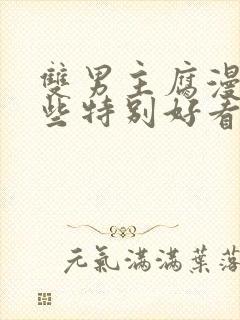 雙男主腐漫
些特別好看
元氣滿滿葉落